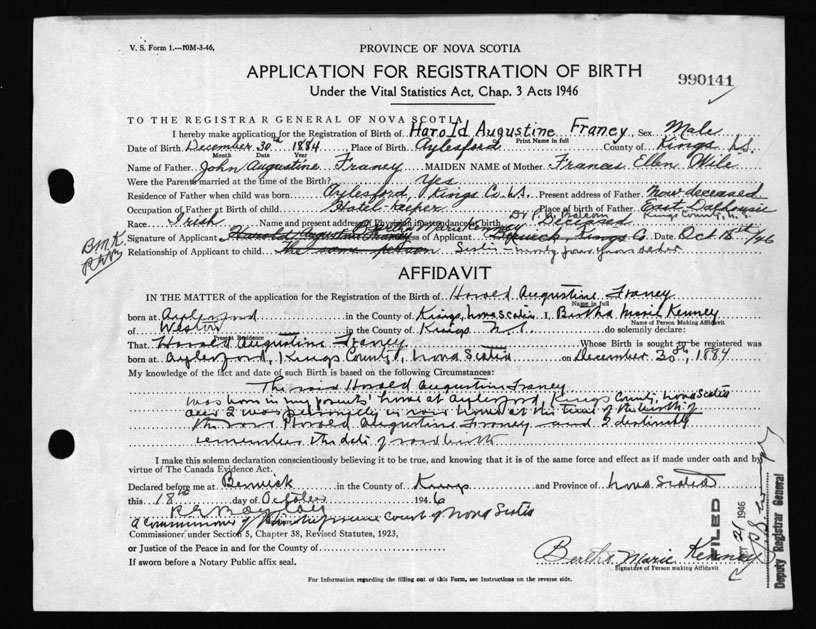 V. S. Form 1.—10M-3-46,
PROVINCE OF NOVA SCOTIA
APPLICATION FOR REGISTRATION OF BIRTH
990141
Under the Vital Statistics Act, Chap. 3 Acts 1946
TO THE REGISTRAR GENERAL OF NOVA SCOTIA
I hereby make application for the Registration of Birth of Harold Augustine Franey, Sex Male
Print Name in full
Date of Birth December 30th 1884, Place of Birth Aylesford County of Kings N.S.
Month Date Year
Name of Father John Augustine Franey MAIDEN NAME of Mother Frances Ellen
Were the Parents married at the time of the Birth? Yes
Residence of Father when child was born Aylesford, Kings Co. N.S. Present address of Father Now deceased
Occupation of Father at Birth of child Hotel-keeper Place of Birth of Father East Dalhousie
Kings County, N.S.
Race Irish Name and present address of Physician in attendance at birth Dr P. N. Balcom Deceased
B.M.K.
Signature of Applicant Harold Augustine Franey Bertha Marie Kenney Address of Applicant Berwick, Kings Co. Date Oct 18th/46
Relationship of Applicant to child the same person Sister - twenty four years older
AFFIDAVIT
IN THE MATTER of the application for the Registration of the Birth of Harold Augustine Franey
Name in full
born at Aylesford in the County of Kings, Nova Scotia I, Bertha Marie Kenney
Name of Person Making Affidavit
of Weston in the County of Kings N.S. do solemnly declare:
Present Residence
That Harold Augustine Franey Whose Birth is sought to be registered was
born at Aylesford, Kings County, Nova Scotia on December 30th, 1884
My knowledge of the fact and date of such Birth is based on the following Circumstances:
The said Harold Augustine Franey
was born in my parents' home at Aylesford, Kings County, Nova Scotia
and I was personally in said home at the time of the birth of
the said Harold Augustine Franey and I distinctly
remember the date of said birth
I make this solemn declaration conscientiously believing it to be true, and knowing that it is of the same force and effect as if made under oath and by
virtue of The Canada Evidence Act.
Declared before me at Berwick in the County of Kings and Province of Nova Scotia
this 18th day of October 1946
A Commissioner of the Supreme Court of Nova Scotia
Commissioner under Section 5, Chapter 38, Revised Statutes, 1923,
or Justice of the Peace in and for the County of
If sworn before a Notary Public affix seal.
Bertha Marie Kenney
Signature of Person making Affidavit
FILED
21 1946
Deputy Registrar General
For Information regarding the filling out of this Form, see Instructions on the reverse side.